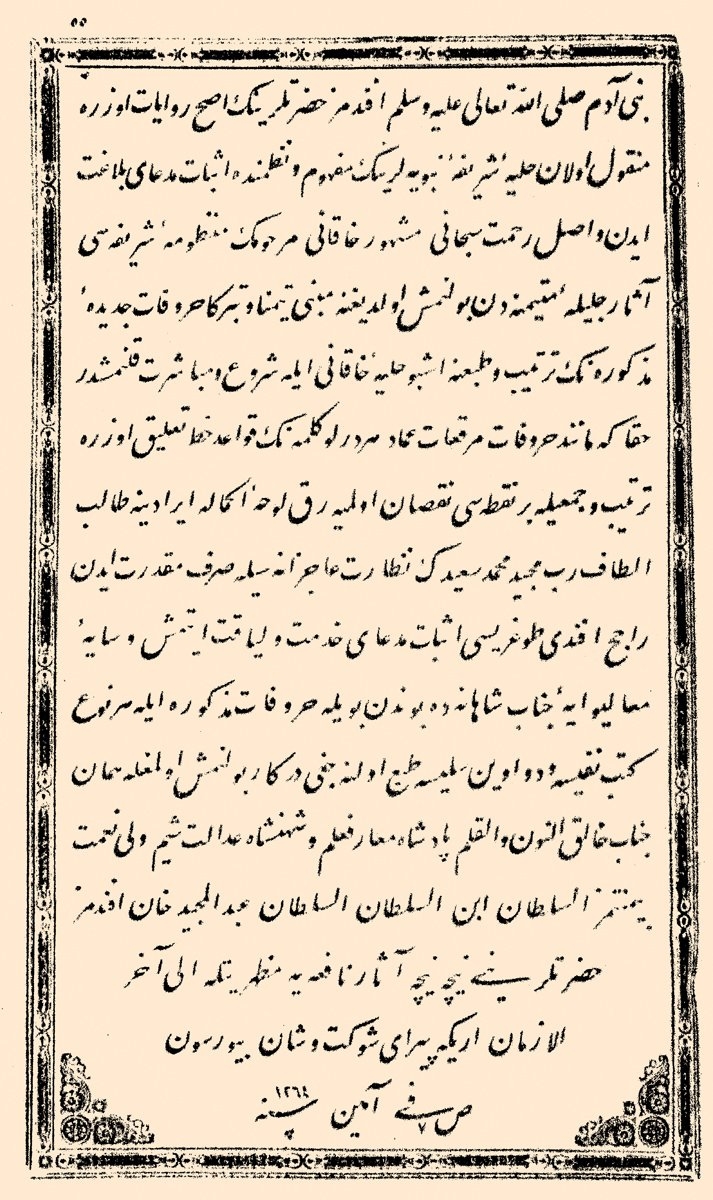 ٥٥
بنی آدم صلی الله تعالی علیه وسلم افندمز حضرتلرینك اصح روایات اوزره
منقول اولان حلیهٔ شریفهٔ نبویه لرینك مفهوم ونظمنده اثبات مدعای بلاغت
ایدن واصل رحمت سبحانی مشهور خاقانی مرحومك منظومهٔ شریفه سی
آثار جلیلهٔ متیمنه دن بولنمش اولدیغنه مبنی تیمنا وتبركا حروفات جدیدهٔ
مذكوره نك ترتیب وطبعنه اشبو حلیهٔ خاقانی ایله شروع ومباشرت قلنمشدر
حقا كه مانند حروفات مرقعات عماد هر درلو كلمه نك قواعد خط تعلیق اوزره
ترتیب وجمعیله بر نقطه سی نقصان اولمیه رق لوحهٔ اكماله ایرادینه طالب
الطاف رب مجید محمد سعیدك نظارت عاجزانه سیله صرف مقدرت ایدن
راجح افندی طوغریسی اثبات مدعای خدمت ولیاقت ایتمش وسایهٔ
معالیوایهٔ جناب شاهانه ده بوندن بویله حروفات مذكوره ایله هر نوع
كتب نفیسه ودواوین سلیسه طبع اولنه جغی در كار بولنمش اولمغله همان
جناب خالق النون والقلم پادشاه معارفعلم وشهنشاه عدالت شیم ولی نعمت
بیمنتمز السلطان ابن السلطان السلطان عبد المجید خان افندمز
حضرتلرینی نیچه نیچه آثار نافعه یه مظهریتله الی آخر
الازمان اریكه پیرای شوكت وشان بیورسون
آمین فی ص سنه ١٢٦٤